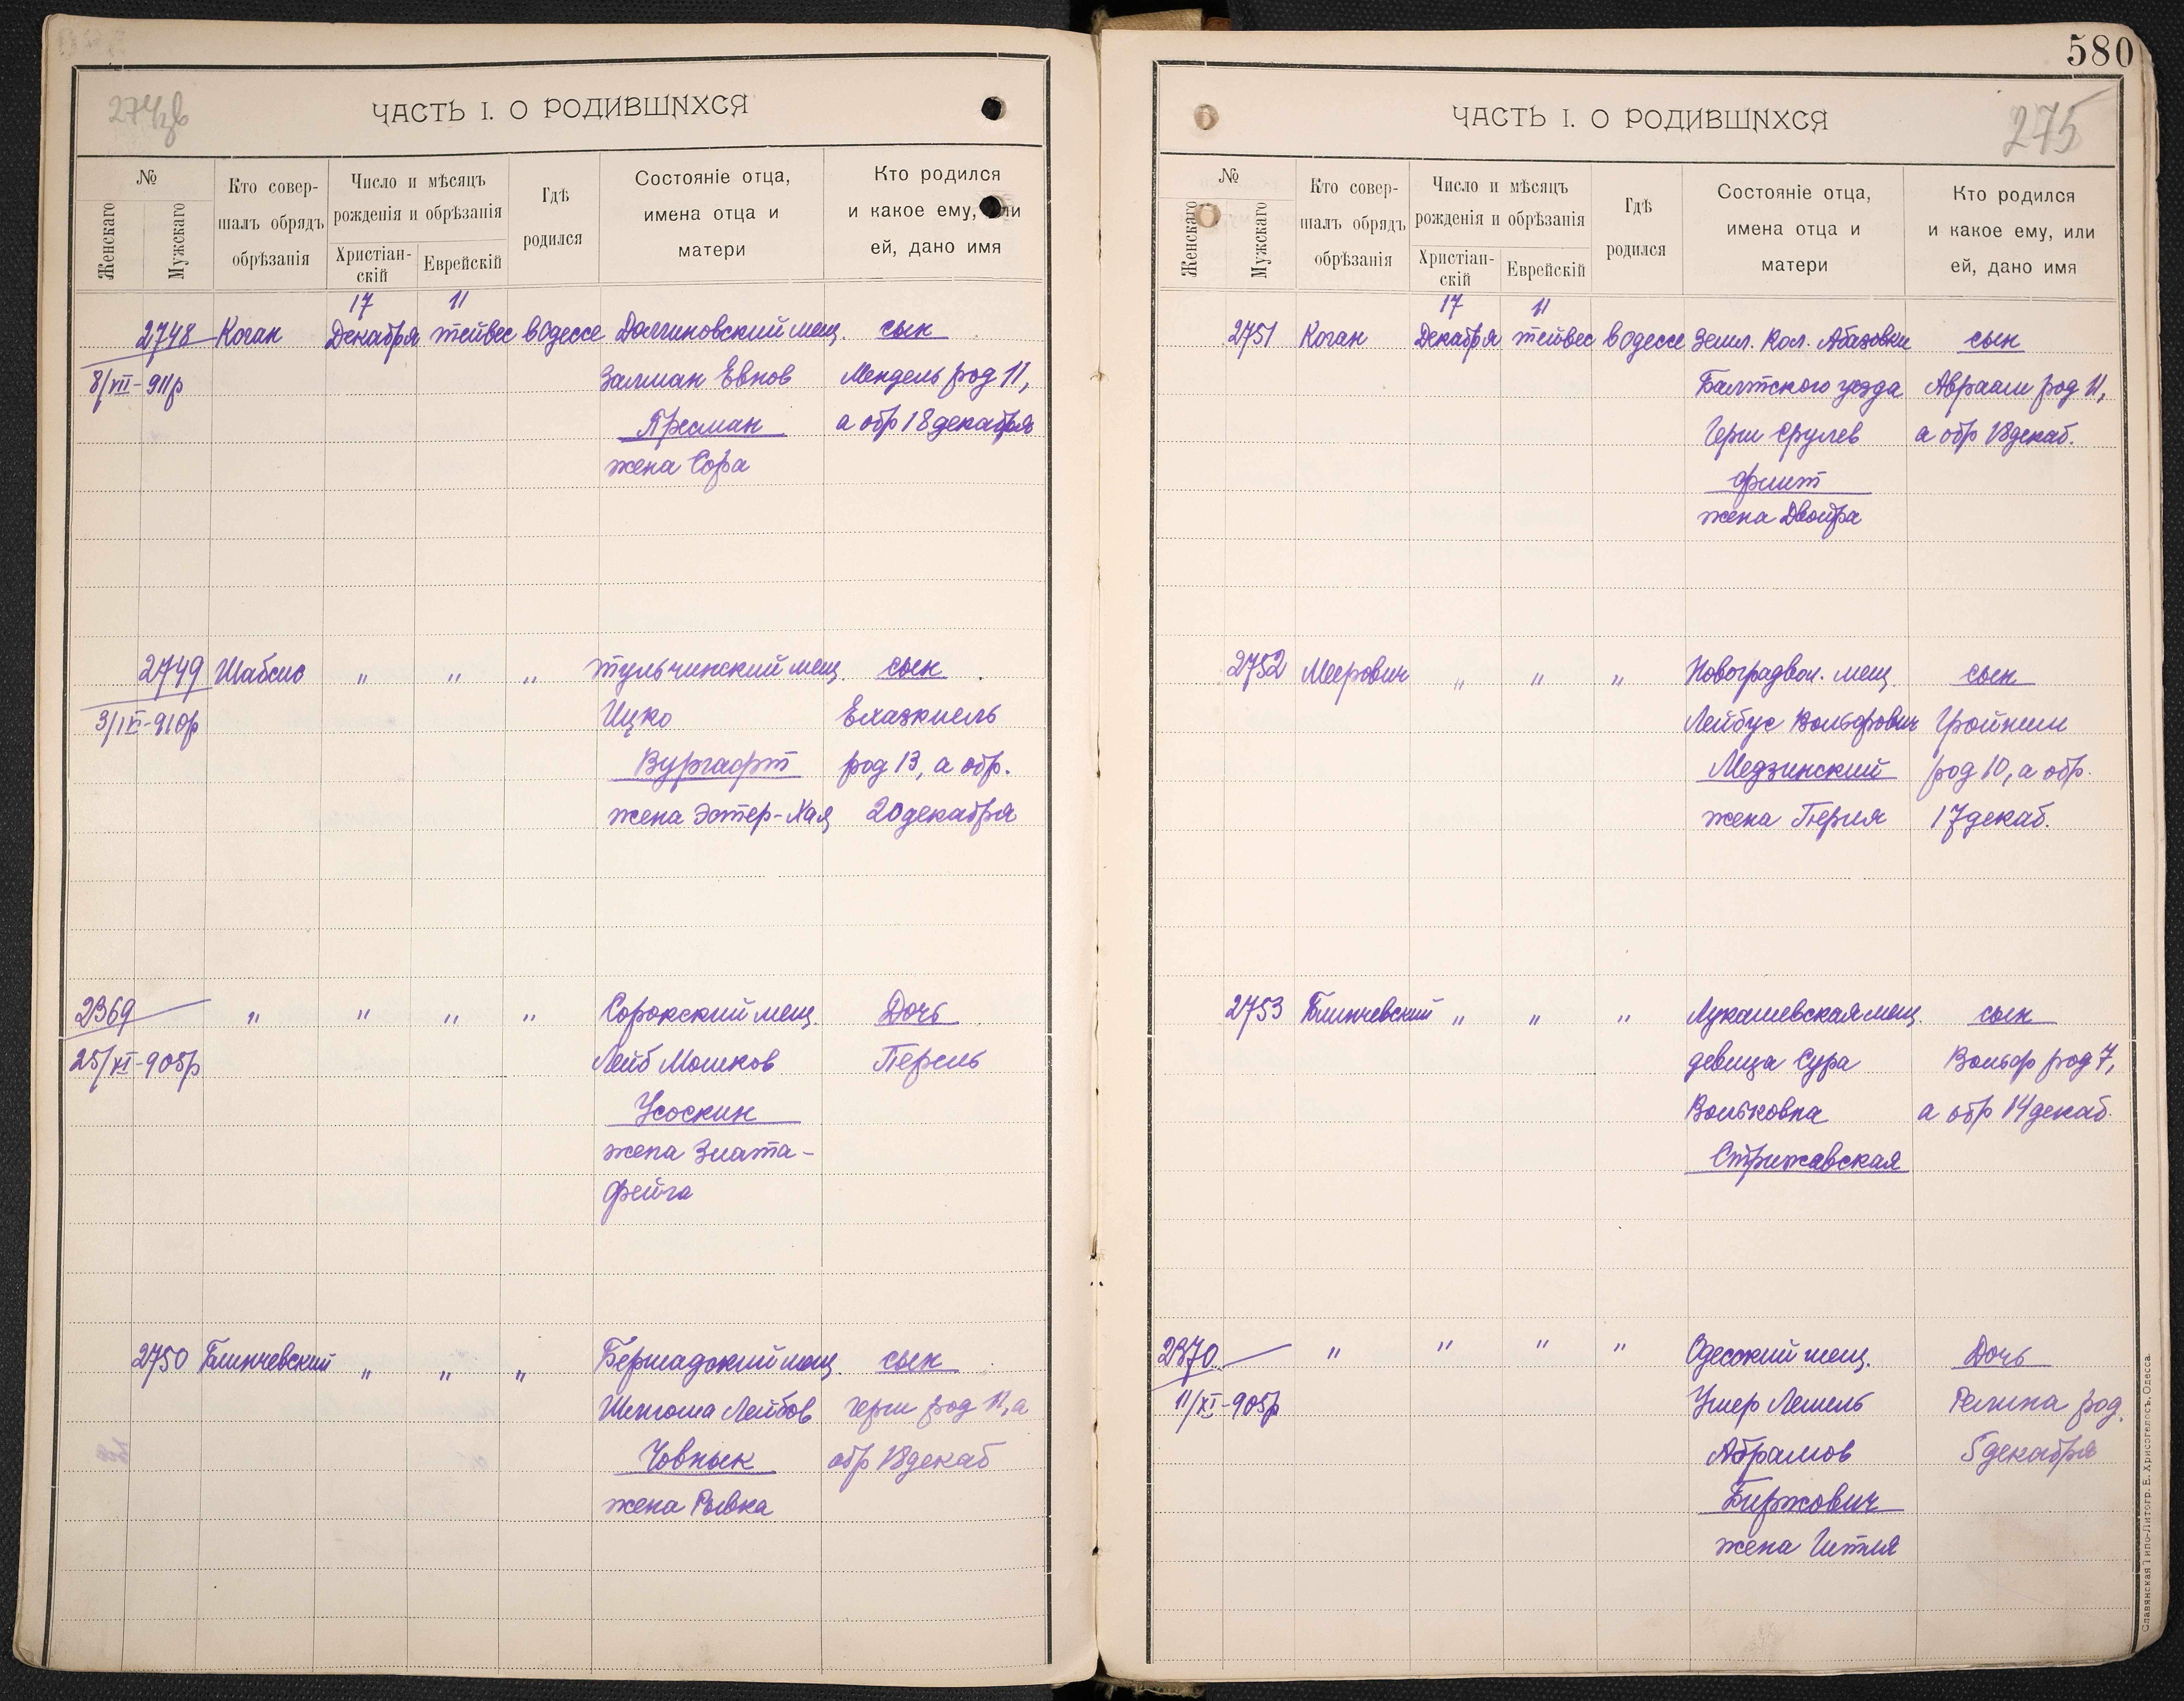 580
274об
ЧАСТЬ I. О РОДИВШИХСЯ
№
Женскаго
Мужскаго
Кто совершалъ обрядъ обрѣзанія
Число и мѣсяцъ рожденія и обрѣзанія
Христіанскій
Еврейскій
Гдѣ родился
Состояніе отца, имена отца и матери
Кто родился и какое ему, или ей, дано имя
17 11
2748 Коган Декабря тейвес в Одессе Долгиновский мещ. сын
8/VII-911р Залман Евнов Мендель род 11,
Пресман а обр 18 декабря
жена Сора
2749 Шабсис " " " тульчинский мещ. сын
3/IV-910р Ицко Ехазкиель
Вургафт род 13, а обр.
жена Эстер-Хая 20 декабря
2369 " " " " Сорокский мещ. Дочь
25/XI-905р Лейб Мошков Перель
Усоскин
жена Злата-
Фейга
2750 Блинчевский " " " Бершадский мещ. сын
Шлиома Лейбов Герш род 11, а
Човнык обр 18 декаб
жена Рывка
275
ЧАСТЬ I. О РОДИВШИХСЯ
№
Женскаго
Мужскаго
Кто совершалъ обрядъ обрѣзанія
Число и мѣсяцъ рожденія и обрѣзанія
Христіанскій
Еврейскій
Гдѣ родился
Состояніе отца, имена отца и матери
Кто родился и какое ему, или ей, дано имя
17 11
2751 Коган Декабря тейвес в Одессе Земл. Кол. Абазовки сын
Балтского уезда Авраам род 11,
Герш Срулев а обр 18 декаб.
Флит
жена Двойра
2752 Меерович " " " Новоградвол. мещ. сын
Лейбус Вольфович Фройким
Медзинский род 10, а обр.
жена Перля 17 декаб.
2753 Блинчевский " " " Лукашевская мещ. сын
девица Сура Вольф род 7,
Вольковна а обр 14 декаб.
Стрижавская
2370 " " " " Одесский мещ. Дочь
11/XI-905р Ушер Лемель род.
Абрамов 5 декабря
Биржович
жена Гитля
Славянская Типо-Литогр. Е. Хрисогелосъ, Одесса.